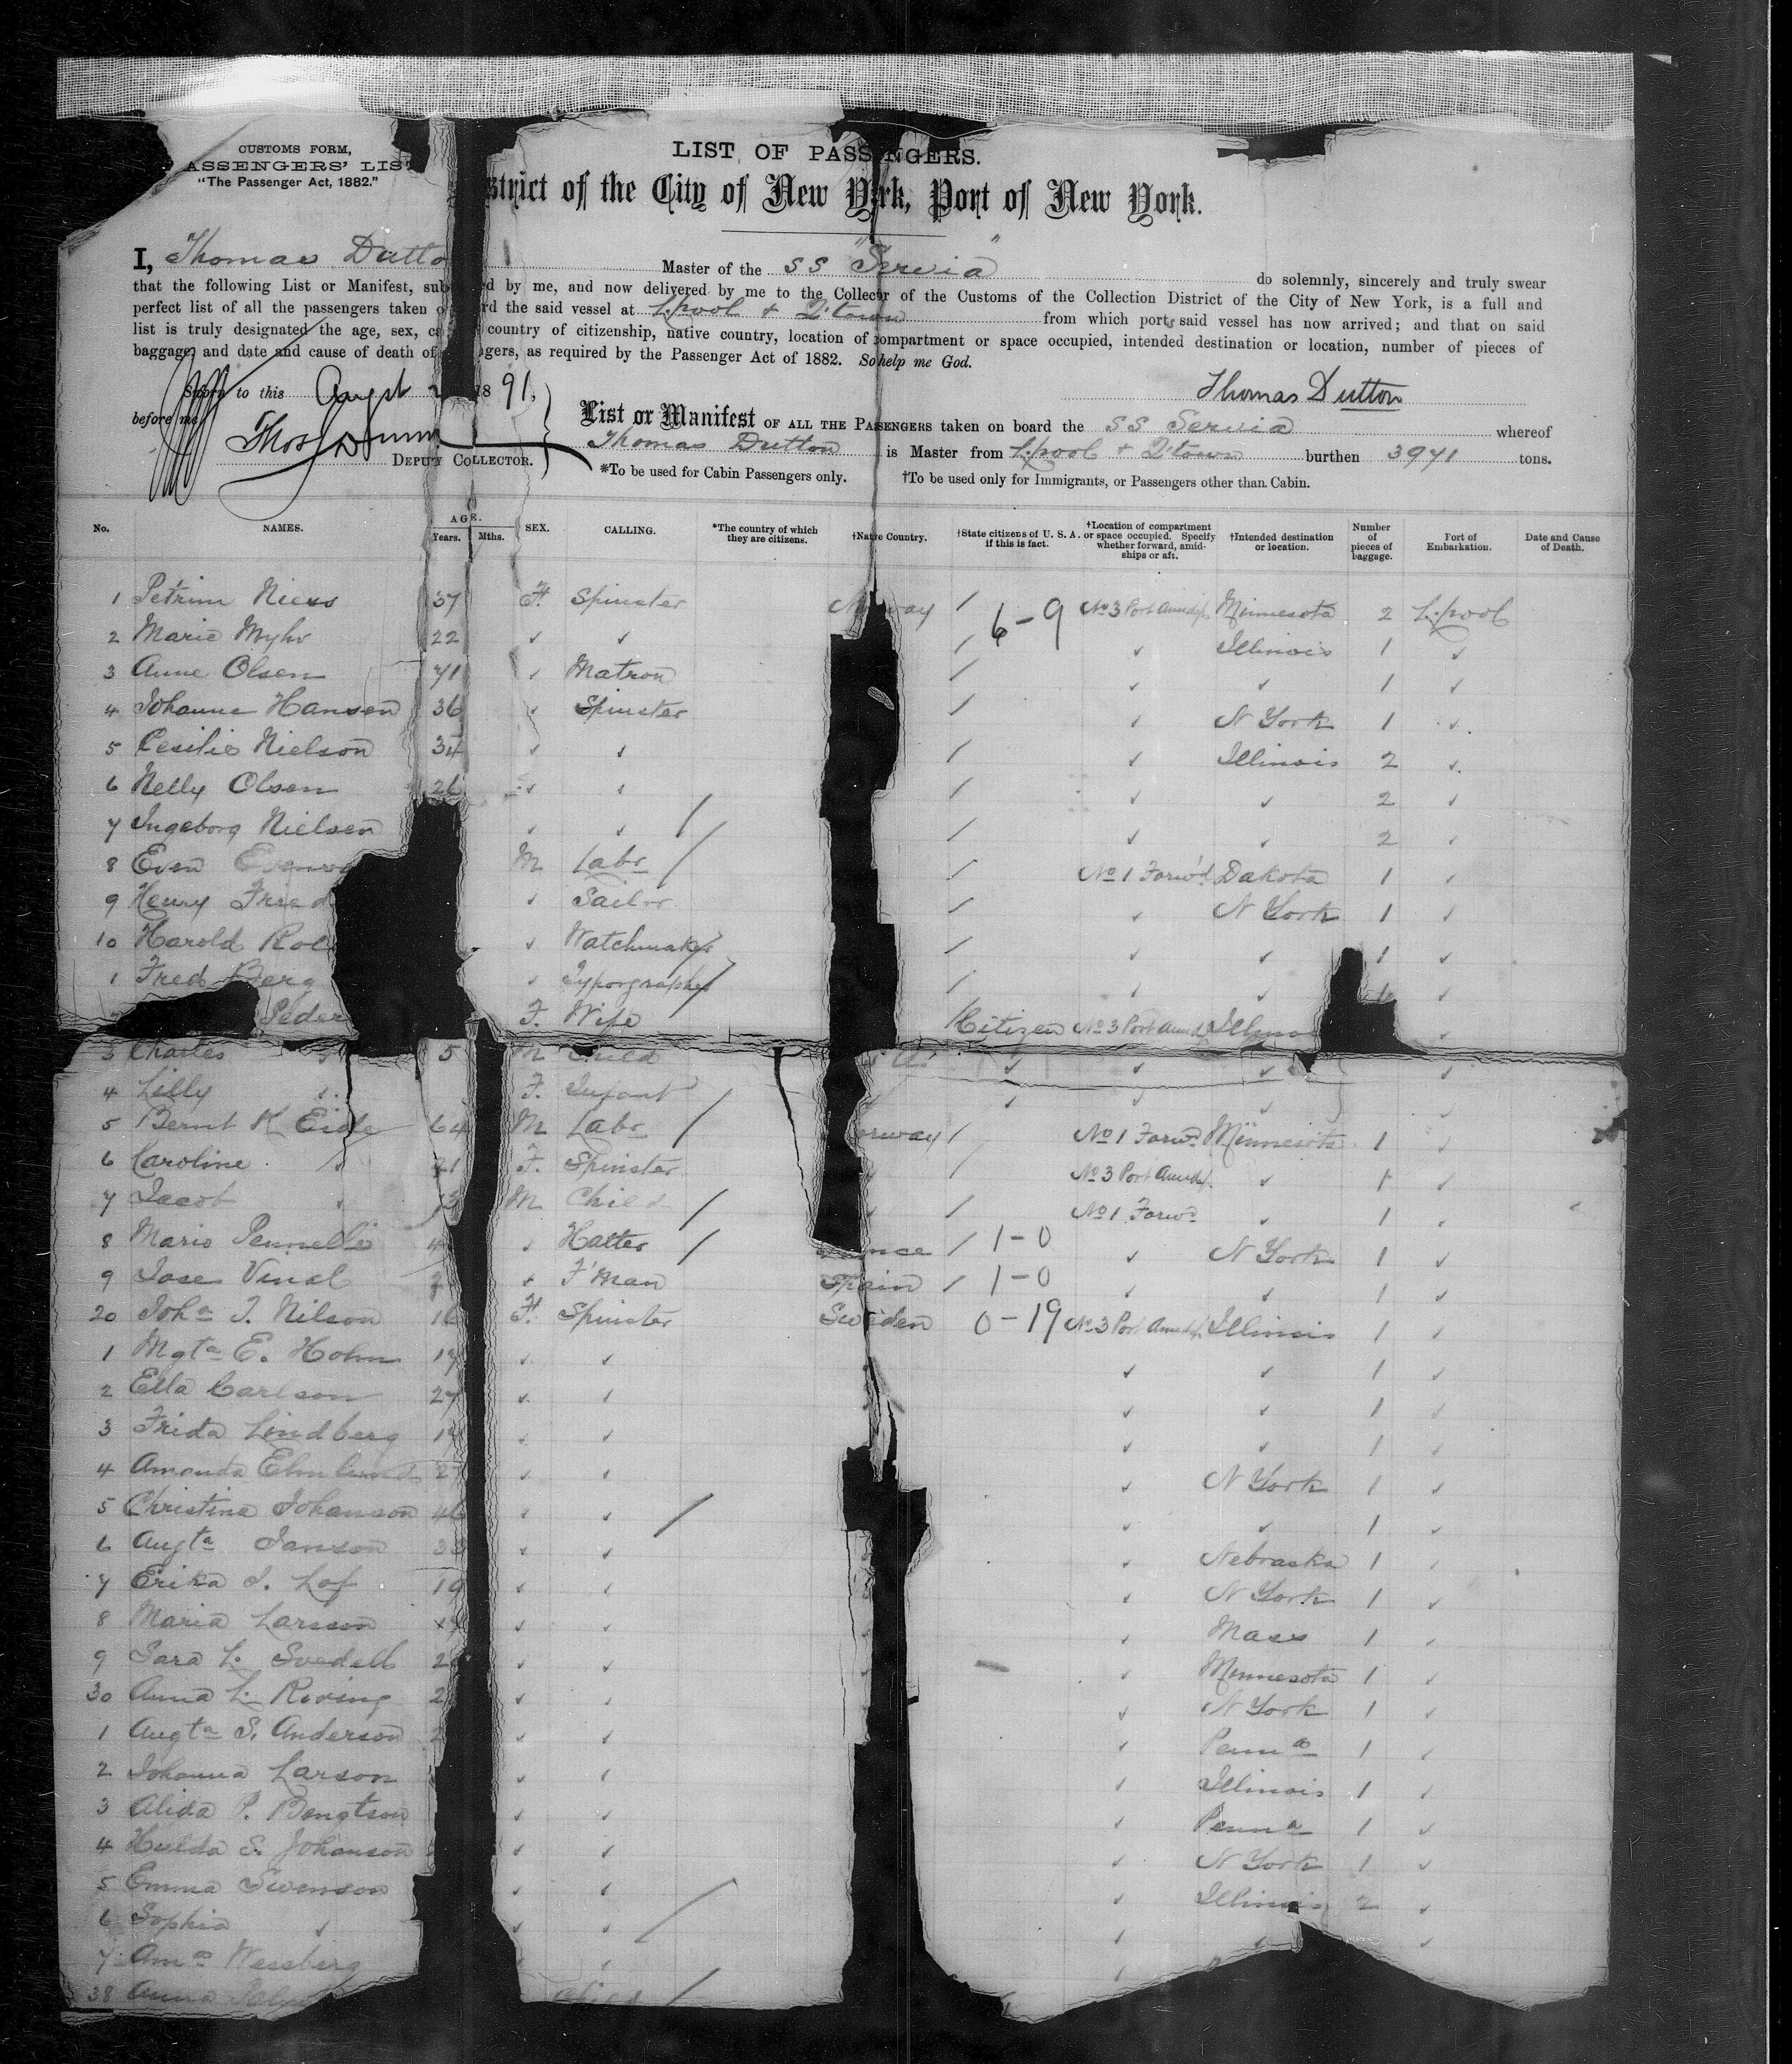 CUSTOMS FORM,
ASSENGERS' LIS
"The Passenger Act, 1882."
LIST OF PASSENGERS.
strict of the City of New York, Port of New York.
I, Thomas Dutto Master of the SS "Servia" do solemnly, sincerely and truly swear
that the following List or Manifest, sub ed by me, and now delivered by me to the Collector of the Customs of the Collection District of the City of New York, is a full and
perfect list of all the passengers taken o rd the said vessel at L:pool + Q'town from which ports said vessel has now arrived; and that on said
list is truly designated the age, sex, ca country of citizenship, native country, location of compartment or space occupied, intended destination or location, number of pieces of
baggage, and date and cause of death of ngers, as required by the Passenger Act of 1882. So help me God.
Sworn to this Augst 18 91,
Thomas Dutton
before me
List or Manifest OF ALL THE PASSENGERS taken on board the SS Servia whereof
Thos Dunn
DEPUTY COLLECTOR.
Thomas Dutton is Master from L:pool + Q'town burthen 3971 tons.
*To be used for Cabin Passengers only. †To be used only for Immigrants, or Passengers other than Cabin.
No. NAMES. AGE. Years. Mths. SEX. CALLING. *The country of which they are citizens. †Native Country. †State citizens of U. S. A. if this is fact. †Location of compartment or space occupied. Specify whether forward, amid-ships or aft. †Intended destination or location. Number of pieces of baggage. Port of Embarkation. Date and Cause of Death.
1 Petrine 37 F. Spinster Norway / 6-9 No 3 Port Amids Minnesota 2 L:pool
2 Marie Myhr 22 ✓ ✓ / ✓ Illinois 1 ✓
3 Anne Olsen 71 ✓ Matron / ✓ ✓ 1 ✓
4 Johanne Hansen 36 ✓ Spinster / ✓ N York 1 ✓
5 Cesilie Nielson 34 ✓ ✓ / ✓ Illinois 2 ✓
6 Nelly Olsen 26 ✓ ✓ / ✓ ✓ 2 ✓
7 Ingeborg Nielsen ✓ ✓ / / ✓ ✓ 2 ✓
8 Even M Labr / / No 1 Forwd Dakota 1 ✓
9 Henry Fried ✓ Sailor / ✓ N York 1 ✓
10 Harold Rol ✓ Watchmaker / / ✓ ✓ 1 ✓
1 Fred Berg ✓ Typographer / / ✓ ✓ ✓
Peder F. Wife / Citizen No 3 Port Amids Illino ✓
3 Charles ✓ 5 M Child ✓ ✓ ✓ ✓
4 Lilly ✓ F. Infant / ✓ ✓ ✓ ✓
5 Bernt K Eide 64 M Labr / orway / No 1 Forwd Minnesota 1 ✓
6 Caroline ✓ 21 F. Spinster / No 3 Port Amids. ✓ 1 ✓
7 Jacob ✓ M Child / / No 1 Forwd ✓ 1 ✓
8 Mario 4 ✓ Hatter / nce / 1-0 ✓ N York 1 ✓
9 Jose Vinal 2 ✓ F'man Spain / 1-0 ✓ ✓ 1 ✓
20 Joha J. Nilson 16 F. Spinster Sweden 0-19 No 3 Port Amids Illinois 1 ✓
1 Mgta E. Holm 17 ✓ ✓ ✓ ✓ 1 ✓
2 Ella Carlson 27 ✓ ✓ ✓ ✓ 1 ✓
3 Frida Lindberg 19 ✓ ✓ ✓ ✓ 1 ✓
4 Amanda Elmlund 2 ✓ ✓ ✓ N York 1 ✓
5 Christina Johanson 46 ✓ ✓ / ✓ ✓ 1 ✓
6 Augta Janson 33 ✓ ✓ ✓ Nebraska 1 ✓
7 Erika J. Lof 19 ✓ ✓ ✓ N York 1 ✓
8 Maria Larsson ✓ ✓ ✓ Mass 1 ✓
9 Sara L. Svedell 2 ✓ ✓ ✓ Minnesota 1 ✓
30 Anna L. Roving 2 ✓ ✓ ✓ N York 1 ✓
1 Augta S. Anderson 2 ✓ ✓ ✓ Penna 1 ✓
2 Johanna Larson ✓ ✓ ✓ Illinois 1 ✓
3 Alida P. Bengtson ✓ ✓ ✓ Penna 1 ✓
4 Hulda S. Johanson ✓ ✓ ✓ N York 1 ✓
5 Emma Swenson ✓ ✓ ✓ Illinois 2 ✓
6 Sophia ✓ ✓ ✓ / ✓ ✓ ✓
7 Ama Wessberg ✓ ✓ ✓
38 Anna Child /